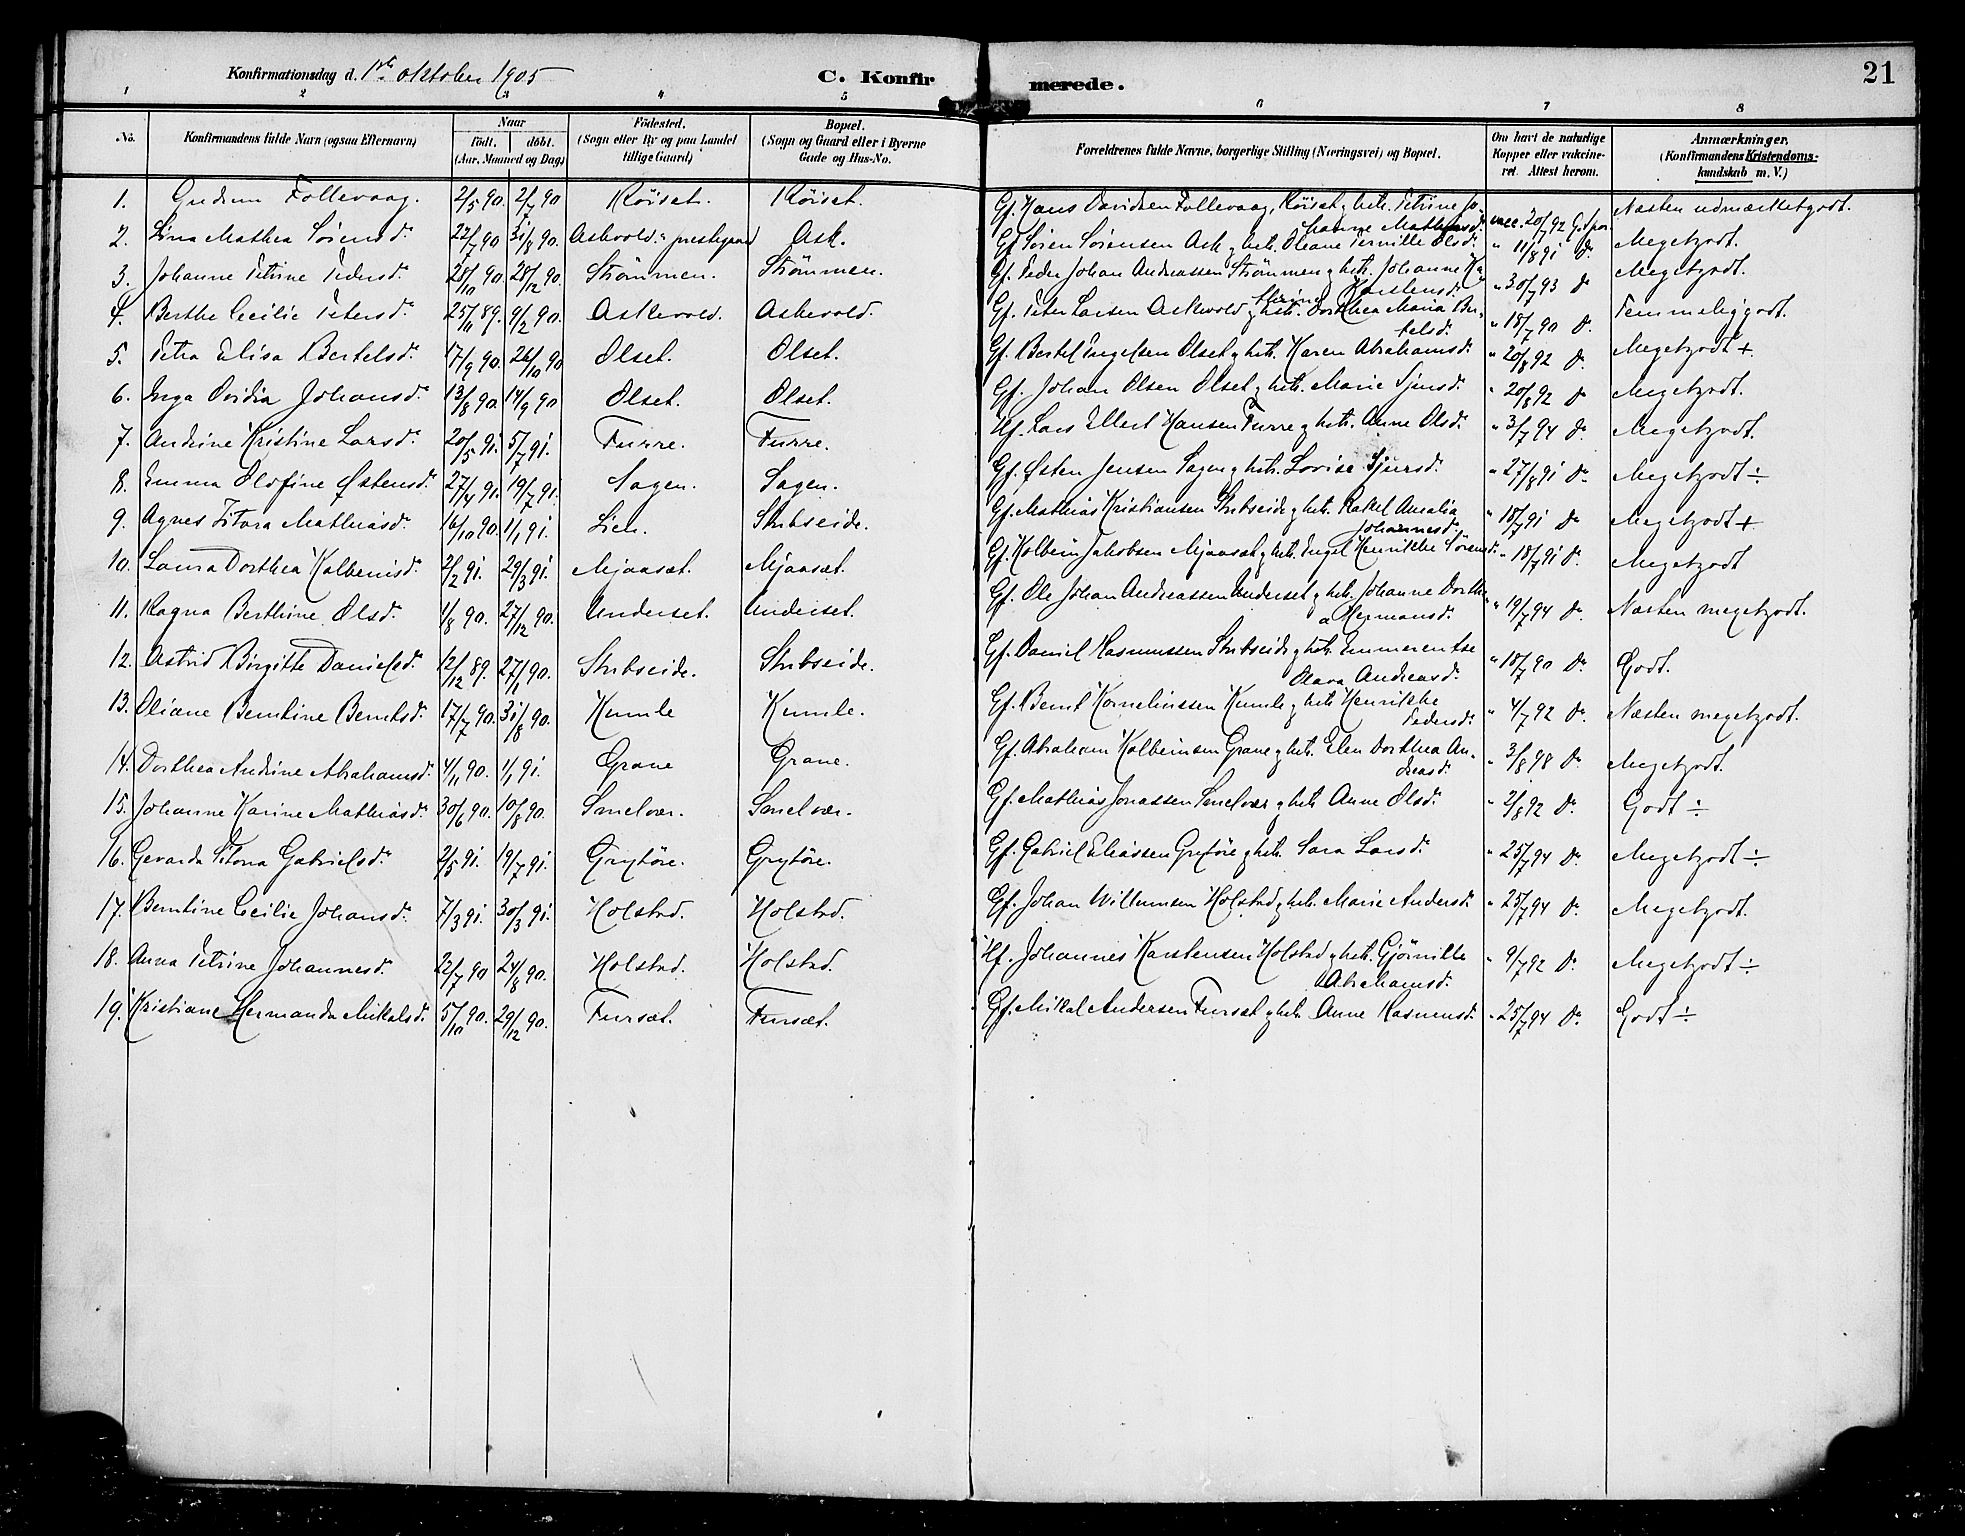 Konfirmationsdag d. 1ste oktober 1905
C. Konfirmerede.
21
1 2 3 4 5 6 7 8
No.
Konfirmandens fulde Navn (ogsaa Efternavn)
Naar
födt. döbt.
(Aar, Maaned og Dag)
Födested.
(Sogn eller By og paa Landet
tillige Gaard)
Bopæl.
(Sogn og Gaard eller i Byerne
Gade og Hus-No.
Forældrenes fulde Navne, borgerlige Stilling (Næringsvei) og Bopæl.
Om havt de naturlige
Kopper eller vakcine-
ret. Attest herom.
Anmærkninger.
(Konfirmandens Kristendoms-
kundskab m. V.)
1. Gudrun Follevaag. 2/5 90. 2/7 90 Röiset. Röiset. Gf. Hans Davidsen Follevaag, Röiset g hstr. Petrine Jo-
hanne Mathiasd. vacc. 20/7 92 Næsten udmærketgodt.
2. Lina Mathea Sörensd. 22/7 90 31/8 90. Askevold prestegaard Ask. Gf. Sören Sörensen Ask g hstr. Oliane Pernille Olsd. " 11/8 91 Do Megetgodt.
3. Johanne Petrine Pedersd. 28/10 90. 28/12 90. Strömmen. Strömmen. Gf. Peder Johan Andreassen Strömmen g hstr. Johanne Ka-
thrine Karstensd. " 30/7 93 Do Megetgodt.
4. Berthe Cecilie Petersd. 25/11 89. 9/2 90. Askevold. Askevold. Gf. Peter Larsen Askevold g hstr. Dorthea Maria Ber-
telsd. " 18/7 90 Do Temmeliggodt.
5. Petra Elisa Bertelsd. 17/9 90. 26/10 90 Olset. Olset. Gf. Bertel Ingelsen Olset g hstr. Karen Abrahamsd. " 20/8 92 Do. Megetgodt +
6. Inga Ovidia Johansd. 13/8 90. 14/9 90 Olset. Olset. Gf. Johan Olsen Olset g hstr. Marie Sjursd. " 20/8 92 Do Megetgodt.
7. Andrine Kristine Larsd. 20/5 91. 5/7 91. Furre. Furre. Hf. Lars Ellert Hansen Furre g hstr. Anne Olsd. " 3/7 94 Do. Megetgodt.
8. Emma Olofine Østensd. 27/4 91. 19/7 91. Sagen. Sagen. Gf. Østen Jensen Sagen g hstr. Lovise Sjursd. " 27/8 91 Do. Megetgodt ÷
9. Agnes Titora Mathiasd. 16/10 90. 1/1 91. Lien. Stubseide. Gf. Mathias Kristiansen Stubseide g hstr. Rakel Amalia
Johannesd. " 18/7 91 Do Megetgodt +
10. Laura Dorthea Kolbeinsd. 2/2 91. 29/3 91. Mjaasæt. Mjaasæt. Gf. Kolbein Jakobsen Mjaasæt g hstr. Ingel Henrikke Sörensd. " 18/7 91 Do. Megetgodt
11. Ragna Berthine Olsd. 1/8 90. 27/12 90. Underset. Underset. Gf. Ole Johan Andreassen Underset g hstr. Johanne Dorthe-
a Hermansd. " 19/7 94 Do. Næsten megetgodt.
12. Astrid Birgitte Danielsd. 12/12 89. 27/1 90. Stubseide. Stubseide. Gf. Daniel Rasmussen Stubseide g hstr. Emmerentse
Olava Andreasd. " 18/7 90 Do. Godt.
13. Oliane Berntine Berntsd. 17/7 90. 31/8 90. Humle Humle. Gf. Bernt Korneliussen Humle g hstr. Henrikke
Pedersd. " 4/7 92 Do. Næsten megetgodt.
14. Dorthea Andrine Abrahamsd. 4/11 90. 1/1 91. Grane Grane. Gf. Abraham Kolbeinsen Grane g hstr. Elen Dorthea An-
dreasd. " 3/8 98 Do. Megetgodt.
15. Johanne Karine Mathiasd. 30/6 90. 10/8 90. Smelvær. Smelvær. Gf. Mathias Jonassen Smelvær g hstr. Anne Olsd. " 2/8 92 Do. Godt ÷
16. Gevarda Petona Gabrielsd. 2/5 91. 19/7 91. Grytöre. Grytöre. Gf. Gabriel Eliassen Grytöre g hstr. Sara Larsd. " 25/7 94 Do. Megetgodt ÷
17. Berntine Cecilie Johansd. 7/3 91. 30/3 91. Holstad. Holstad. Gf. Johan Willumsen Holstad g hstr. Marie Andersd. " 25/7 94 Do. Megetgodt.
18. Anna Petrine Johannesd. 22/7 90 24/8 90. Holstad. Holstad. Hf. Johannes Karstensen Holstad g hstr. Gjörnille
Abrahamsd. " 9/7 92 Do. Megetgodt ÷
19. Kristiane Hermanda Mikalsd. 5/10 90. 29/12 90. Fursæt. Fursæt. Gf. Mikal Andersen Fursæt g hstr. Anne Rasmusd. " 25/7 94 Do. Godt ÷